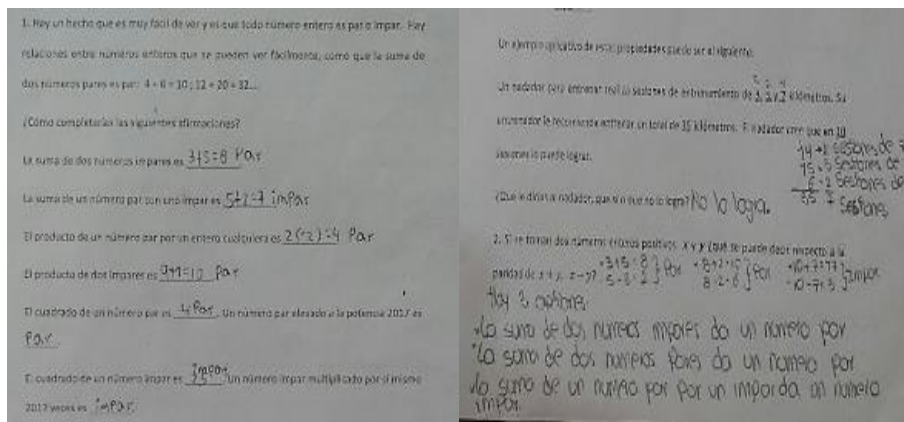 1. Hay un hecho que es muy fácil de ver y es que todo número entero es par o impar. Hay
relaciones entre números enteros que se pueden ver fácilmente, como que la suma de
dos números pares es par: 4 + 6 = 10 ; 12 + 20 = 32...
¿Cómo completarías las siguientes afirmaciones?
La suma de dos números impares es 3+5=8 Par
La suma de un número par con uno impar es 5+2=7 impar
El producto de un número par por un entero cualquiera es 2(2)=4 Par
El producto de dos impares es 9+1=10 Par
El cuadrado de un número par es 4 Par . Un número par elevado a la potencia 2017 es
Par
El cuadrado de un número impar es impar Un número impar multiplicado por sí mismo
2017 veces es impar
Un ejemplo aplicativo de estas propiedades puede ser el siguiente:
Un nadador para entrenar realiza sesiones de entrenamiento de 3, y kilómetros. Su
entrenador le recomienda entrenar un total de 35 kilómetros. El nadador cree que en 10
sesiones lo puede lograr.
14 → sesiones de 7
15 . 5 Sesiones de
6 - 2 Sesiones de
35 Sesiones
¿Qué le dirías al nadador, que sí o que no lo logra? No lo logra.
2. Si se toman dos números enteros positivos x y y ¿qué se puede decir respecto a la
paridad de x + y, x - y? 3+5=8 5-3=2 } Par 8+2=10 8-2=6 } Par 10+7=17 10-7=3 } impar
Hay 3 opciones:
La suma de dos números impares da un número par
La suma de dos números Pares da un número par
la suma de un número par por un impar da un número
impar.